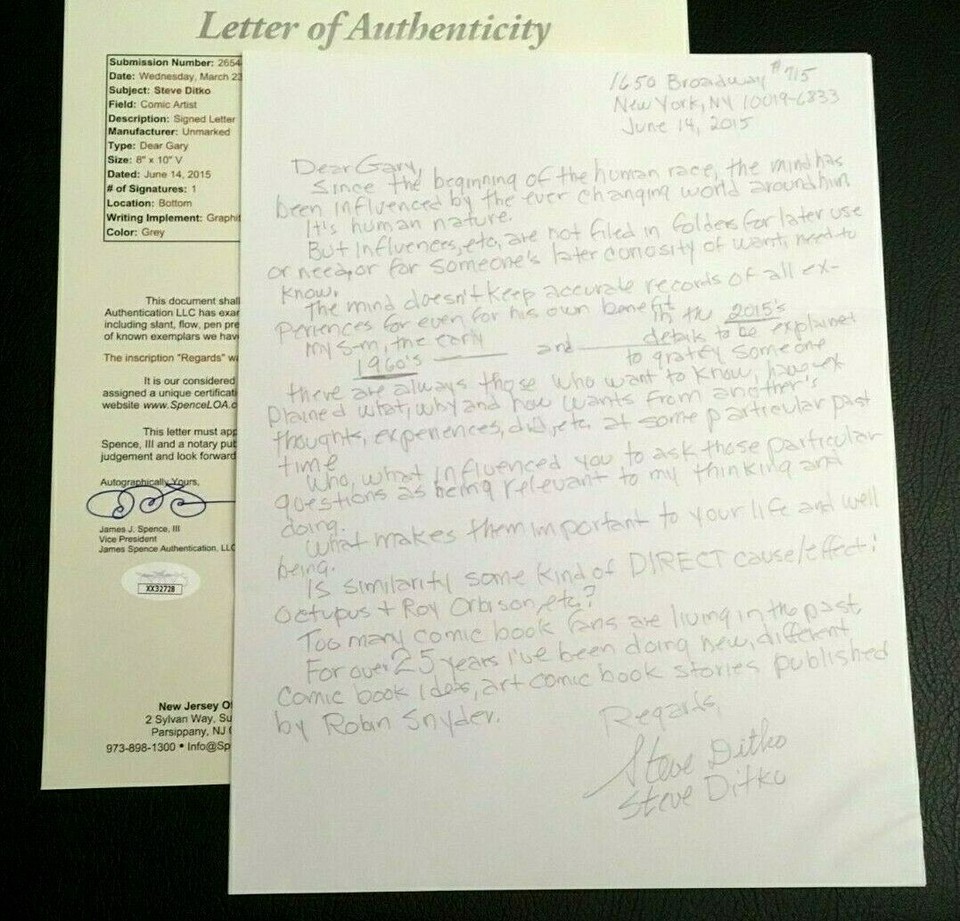 Letter of Authenticity
Submission Number: 2654
Date: Wednesday, March 23
Subject: Steve Ditko
Field: Comic Artist
Description: Signed Letter
Manufacturer: Unmarked
Type: Dear Gary
Size: 8" x 10" V
Dated: June 14, 2015
# of Signatures: 1
Location: Bottom
Writing Implement: Graphit
Color: Grey
This document shall
Authentication LLC has exar
including slant, flow, pen pre
of known exemplars we hav
The inscription "Regards" w
It is our considered
assigned a unique certificat
website www.SpenceLOA.c
This letter must app
Spence, III and a notary pub
judgement and look forward
Autographically Yours,
James J. Spence, III
Vice President
James Spence Authentication, LLC
XX32728
New Jersey Of
2 Sylvan Way, Su
Parsippany, NJ
973-898-1300 • Info@Sp
1650 Broadway #715
New York, NY 10019-6833
June 14, 2015
Dear Gary,
Since the beginning of the human race, the mind has
been influenced by the ever changing world around him
It's human nature.
But influences, etc, are not filed in folders for later use
or need, or for someone's later curiosity of want, need to
know.
The mind doesn't keep accurate records of all ex-
periences for even for his own benefit
My S-m, the early 1960's and in the 2015's
details to be explained
to someone
there are always those who want to know, have ex
plained what, why and how wants from another's
thoughts, experiences, did, etc. at some particular past
time
Who, what influenced you to ask those particular
questions as being relevant to my thinking and
doing.
What makes them important to your life and well
being.
Is similarity some kind of DIRECT cause/effect?
Octupus + Roy Orbison, etc?
Too many comic book fans are living in the past
For over 25 years I've been doing new, different
comic book ideas, art comic book stories published
by Robin Snyder.
Regards,
Steve Ditko
Steve Ditko